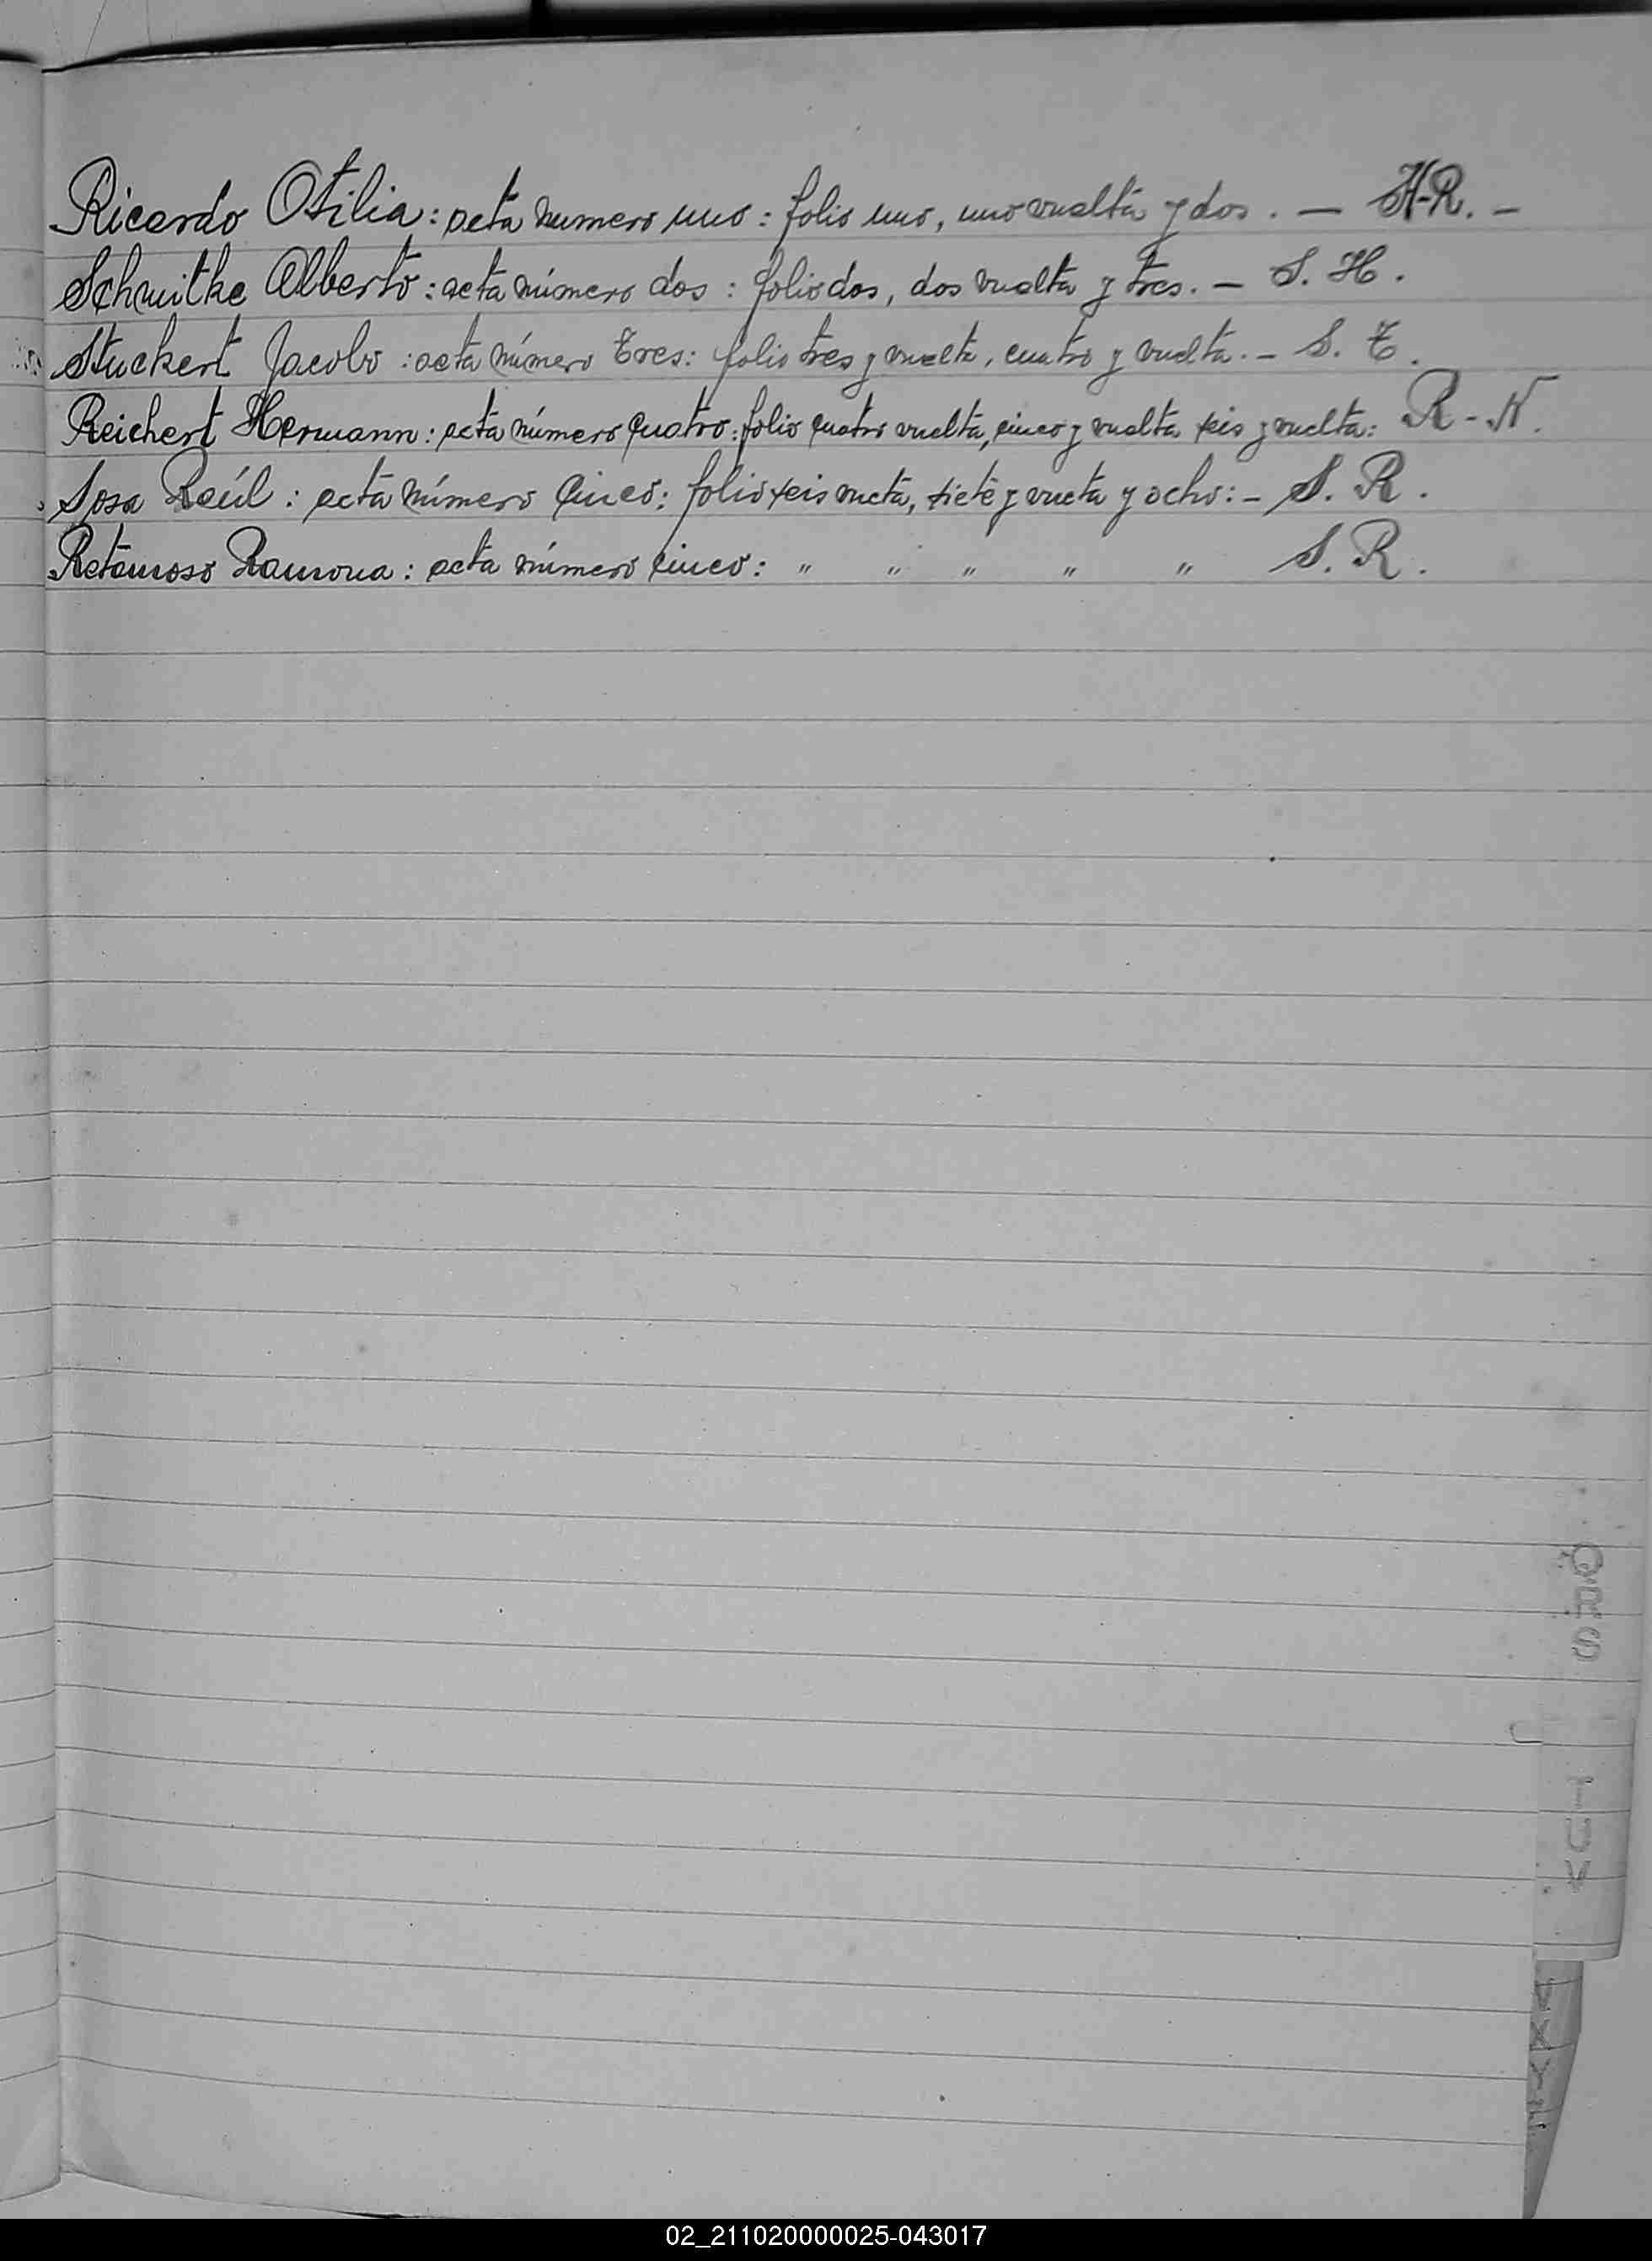 Ricardo Otilia: acta numero uno: folio uno, uno vuelta y dos. — H-R. -
Schmitke Alberto: acta número dos: folio dos, dos vuelta y tres. - S. H.
Stuckert Jacobo: acta número Tres: folio tres y vuelta, cuatro y vuelta. - S. T.
Reichert Hermann: acta número quatro: folio quatro vuelta, cinco y vuelta seis y vuelta: R-K.
Sosa Raúl: acta número cinco: folio seis vueta, siete y vueta y ocho: - S. R.
Retamoso Ramona: acta número cinco: " " " " " S. R.
QRS
02_211020000025-043017